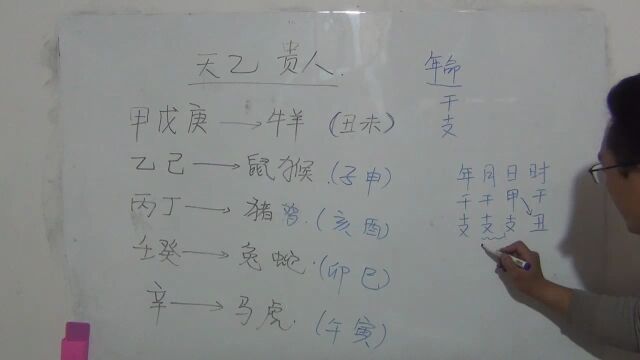 天乙 贵人.
甲戊庚 → 牛羊 (丑未)
乙己 → 鼠猴.(子申)
丙丁 → 猪 (亥酉)
壬癸 → 兔蛇.(卯巳)
辛 → 马虎.(午寅)
年命
干
支
年月日时
干干甲干
支支支丑